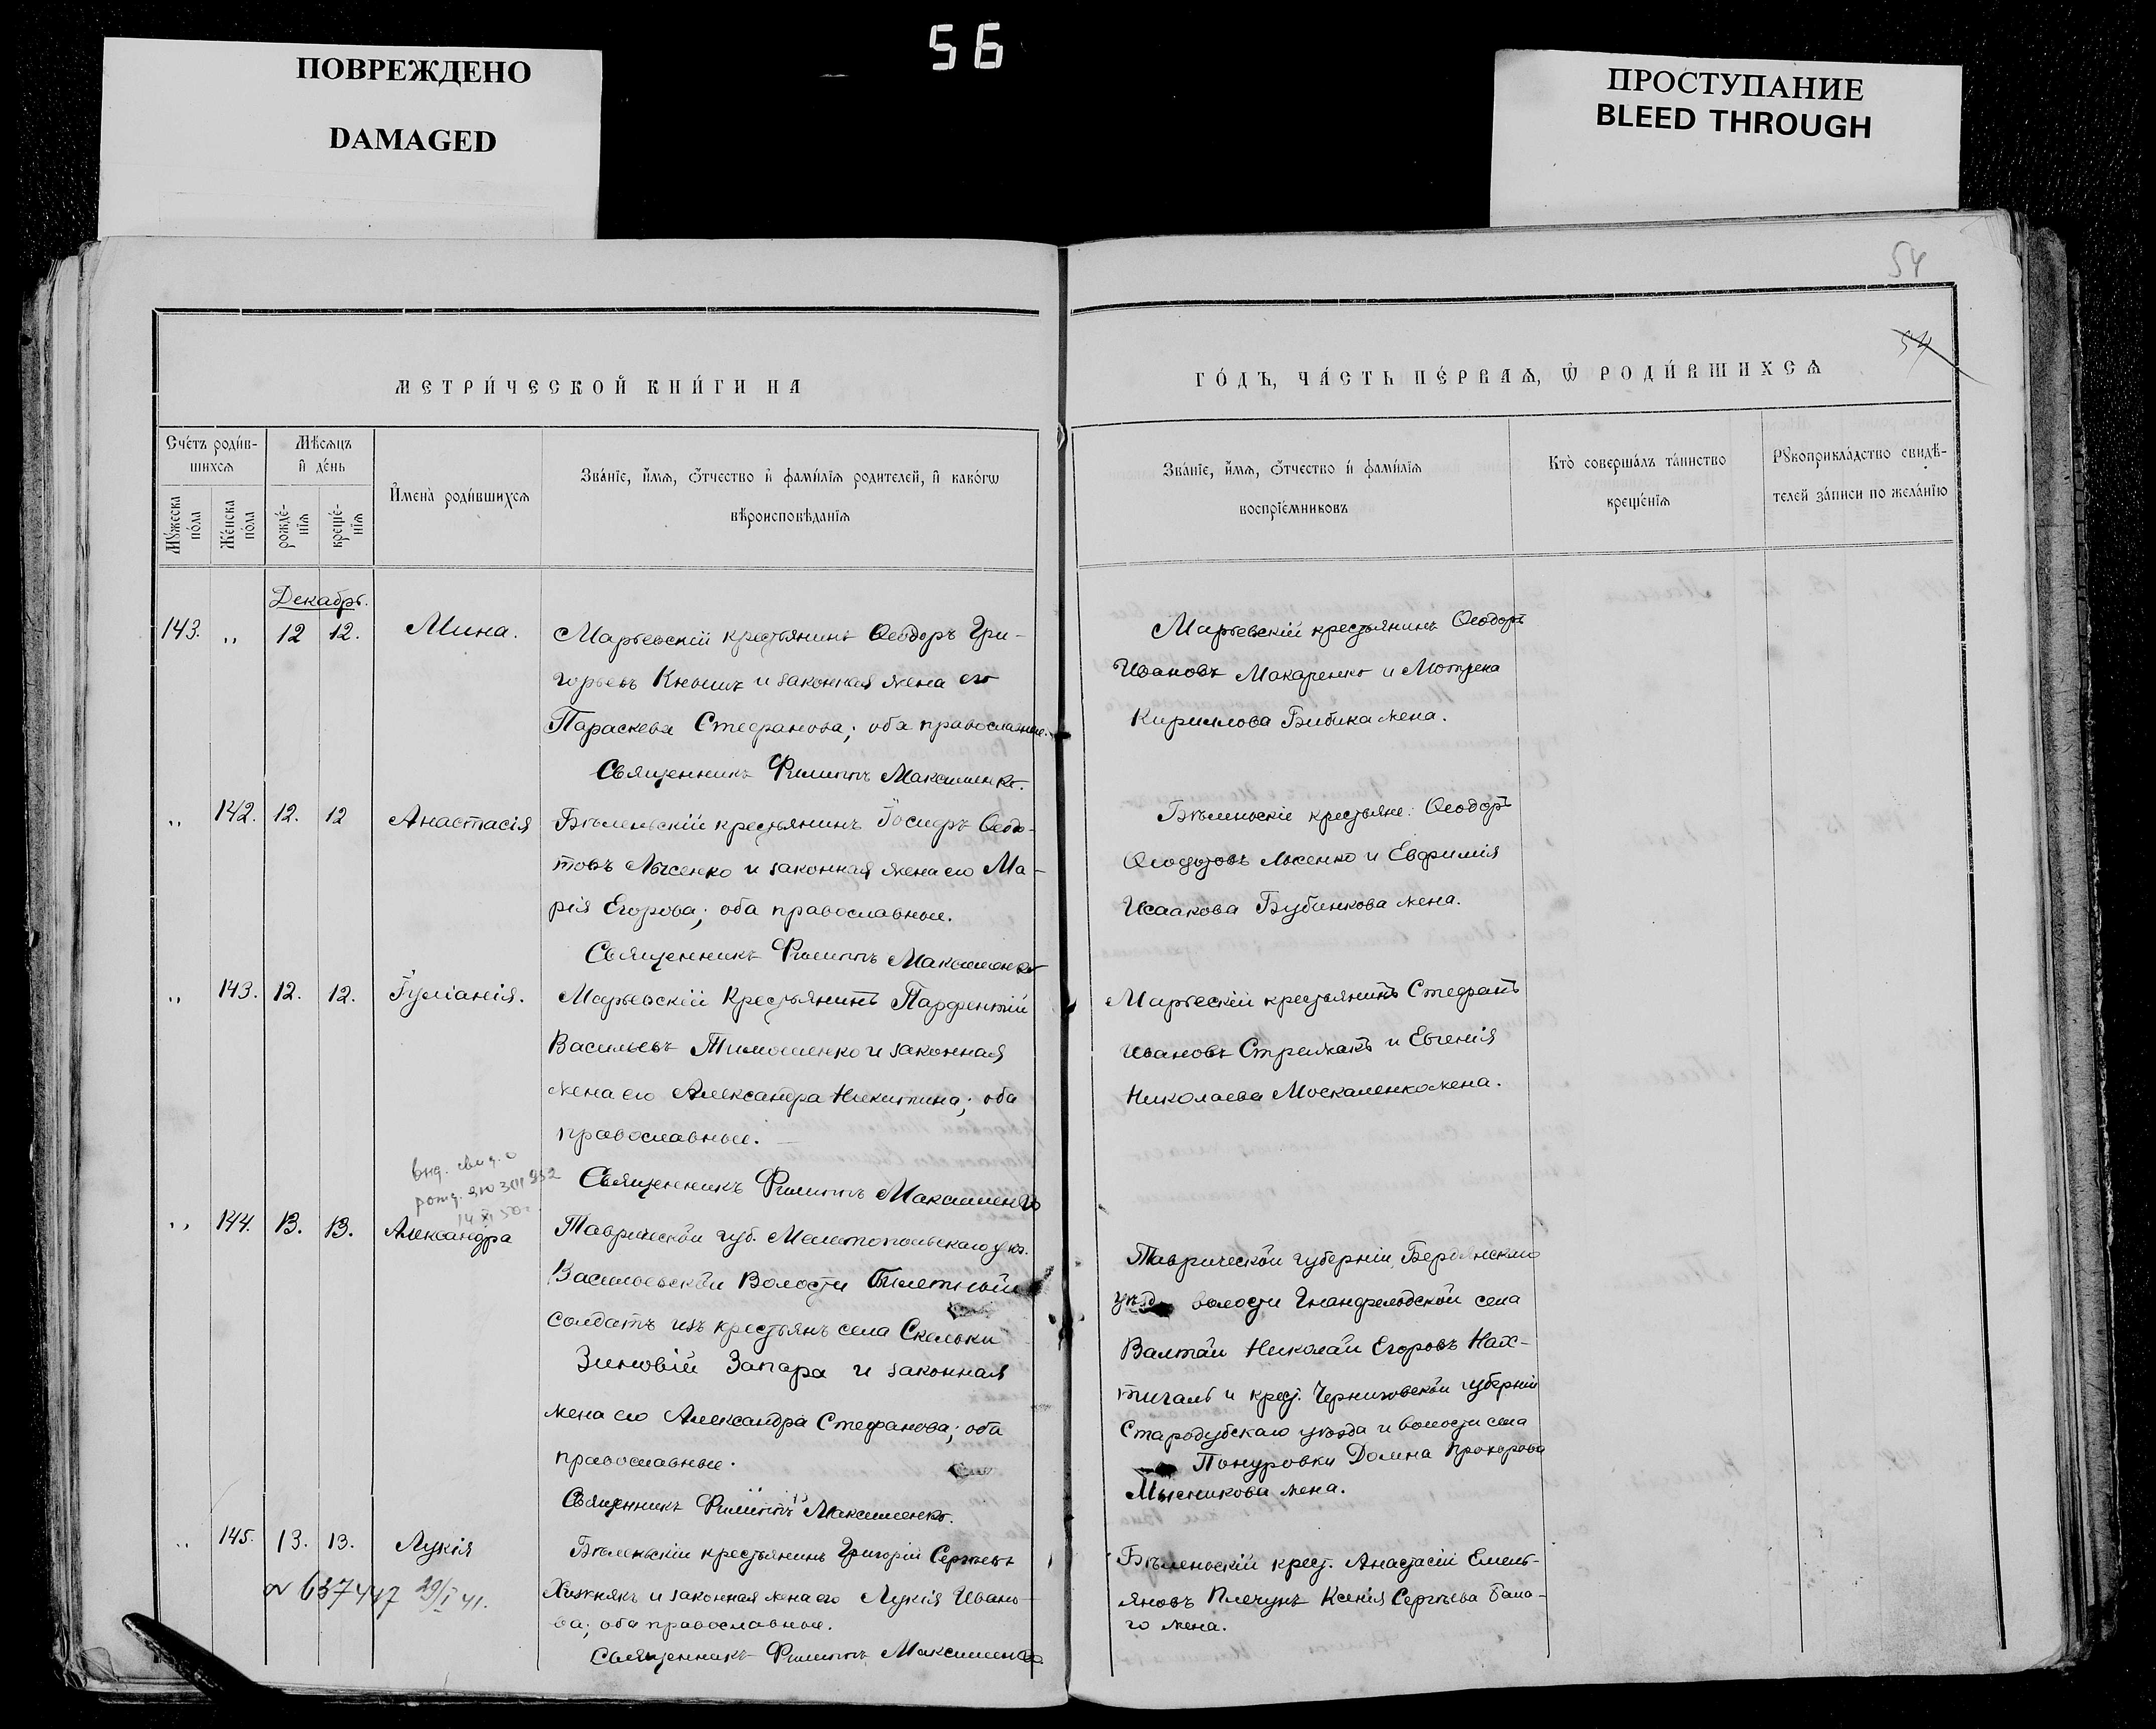 ПОВРЕЖДЕНО
DAMAGED
56
ПРОСТУПАНИЕ
BLEED THROUGH
54
54
МЕТРИ́ЧЕСКОЙ КНИ́ГИ НА
ГО́ДЪ, ЧА́СТЬ ПЕ́РВАѦ, Ѡ҆ РОДИ́ВШИХСѦ
Сче́тъ роди́в-
шихсѧ
Мꙋ́жеска по́ла
Же́нска по́ла
Мѣ́сѧцъ
и҆ де́нь
рожде́-
нїѧ
креще́-
нїѧ
И҆мена̀ роди́вшихсѧ
Зва́нїе, и҆́мѧ, ѻ҆́тчество и҆ фами́лїѧ родителей, и҆ како́гѡ
вѣроисповѣ́данїѧ
Зва́нїе, и҆́мѧ, ѻ҆́тчество и҆ фами́лїѧ
воспрїе́мниковъ
Кто̀ соверша́лъ та́инство
креще́нїѧ
Рꙋкоприкла́дство свидѣ́-
телей за́писи по жела́нїю
Декабрь.
143. „ 12 12. Мина.
Марьевскій крестьянинъ Ѳеодоръ Гри-
горьевъ Кнышъ и законная жена его
Параскева Стефанова; оба православные.
Священникъ Филиппъ Максименко.
Марьевскій крестьянинъ Ѳеодоръ
Ивановъ Макаренко и Мотрена
Кириллова Бибика жена.
„ 142. 12. 12 Анастасія
Бѣленьскій крестьянинъ Іосифъ Ѳеодо-
товъ Лысенко и законная жена его Ма-
рія Егорова; оба православные.
Священникъ Филиппъ Максименко
Бѣленьскіе крестьяне: Ѳеодоръ
Ѳеодотовъ Лысенко и Евфимія
Исаакова Бубинкова жена.
„ 143. 12. 12. Іуліанія.
Марьевскій крестьянинъ Парфентій
Васильевъ Тимошенко и законная
жена его Александра Никитина; оба
православные.
Священникъ Филиппъ Максименко
Марьескій крестьянинъ Стефанъ
Ивановъ Стрижакъ и Евгенія
Николаева Москаленко жена.
выд. свид. о
14 XI 50 г
„ 144. 13. 13. Александра
Таврической губ. Мелитопольскаго уѣз.
Васильевской Волости билетный
солдатъ изъ крестьянъ села Скельки
Зиновій Запара и законная
жена его Александра Стефанова; оба
православные.
Священникъ Филиппъ Максименко.
Таврической губерніи, Бердянскаго
уѣзда волости Гнанденфельдской села
Валтай Николай Егоровъ Нах-
тигаль и крест. Черниговской губерніи
Стародубскаго уѣзда и волости села
Понуровки Домна Прохорова
Мысникова жена.
„ 145. 13. 13. Лукія
Бѣленьскій крестьянинъ Григорій Сергѣевъ
Хижнякъ и законная жена его Лукія Ивано-
ва; оба православные.
Священникъ Филиппъ Максименко
Бѣленьскій крест. Анастасій Емель-
яновъ Плечунъ Ксенія Сергѣева
го жена.
№ 637447 29/I 41.